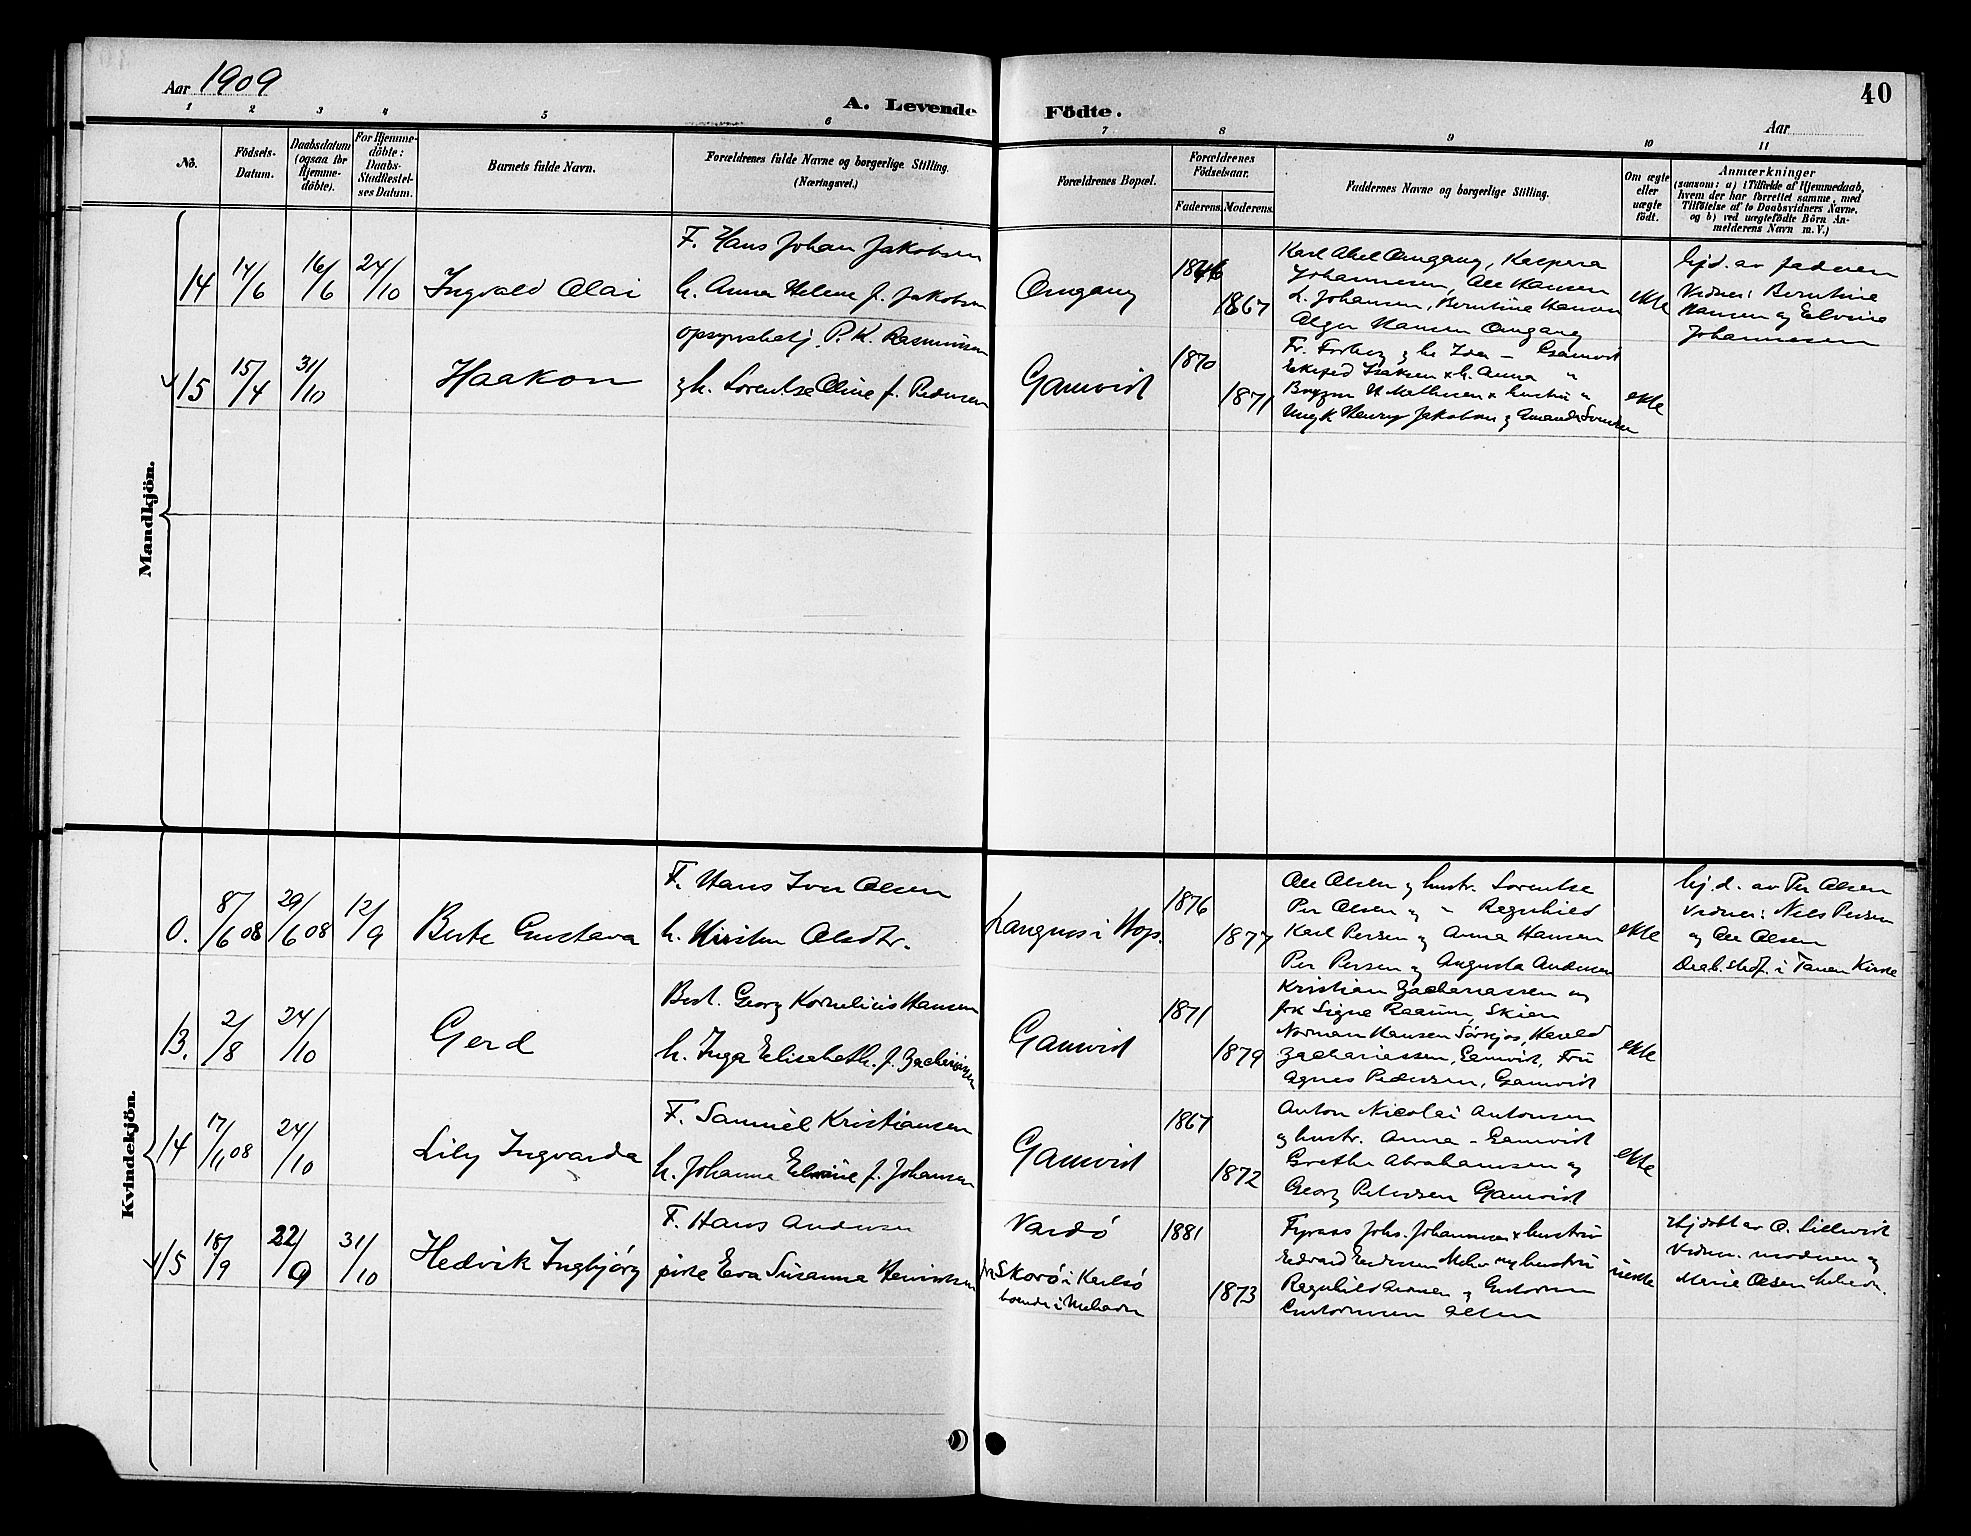 Aar 1909
A. Levende Födte.
40
Aar
1 2 3 4 5 6 7 8 9 10 11
No.
Födsels-
Datum.
Daabsdatum
(ogsaa for
Hjemme-
döbte).
For Hjemme-
döbte:
Daabs-
Stadfestel-
ses Datum.
Barnets fulde Navn.
Forældrenes fulde Navne og borgerlige Stilling.
(Næringsvei.)
Forældrenes Bopæl.
Forældrenes
Födselsaar.
Faderens. Moderens.
Faddernes Navne og borgerlige Stilling.
Om ægte
eller
uægte
födt.
Anmærkninger
(saasom: a) i Tilfælde af Hjemmedaab,
hvem der har forrettet samme, med
Tilföielse af to Daabsvidners Navne,
og b) ved uægtefödte Börn An-
melderens Navn m. V.)
Mandkjön.
14 14/6 16/6 24/10 Ingvald Olai
F. Hans Johan Jakobsen
h. Anna Helene f. Jakobsen
Omgang
1867
Karl Abel Omgang, Kaspara
Johannesen, Ole Hansen
L. Johansen, Berntine Hansen
Alger Hansen Omgang
ekte
hjd. av faderen
Vidner: Berntine
Hansen og Elvine
Johannesen
15 15/4 31/10 Haakon
opsynsbetj. P. K. Rasmussen
og h. Lorentse Oline f. Pedersen
Gamvik
1870
1871
Isaksen & h. Anna "
H. Mathisen & hustru "
Ungk Henry Jakobsen og
ekte
Kvindekjön.
0. 8/6 08 29/6 08 12/9 Berte Gustava
F. Hans Iver Olsen
h. Kirsten Olsdtr.
Langnes i Hops.
1876
1877
Ole Olsen og hustr. Lorentse
Per Olsen og " Ragnhild
Karl Persen og Anna Hansen
Per Persen og Augusta Andersen
ekte
hj.d. av Per Olsen
Vidner: Nils Persen
og Ole Olsen
Daab. stadf. i Tanen Kirke
13. 2/8 24/10 Gerd
Best. Georg Kornelius Hansen
h. Inga Elisabeth f. Zachariassen
Gamvik
1871
1879
Kristian Zachariassen og
frk Signe Raaum, Skien
Norman Hansen Sörsjos, Harald
Zachariassen, Gamvik, Fru
Agnes Pedersen, Gamvik
ekte
14 17/11 08 24/10 Lily Ingvarda
F. Samuel Kristiansen
h. Johanna Elvine f. Johansen
Gamvik
1867
1872
Anton Nicolai Antonsen
og hustr. Anna - Gamvik
Grethe Abrahamsen og
Georg Petersen Gamvik
ekte
15 18/9 22/9 31/10 Hedvik Ingbjörg
F. Hans Andersen
pike Eva Susanna Henriksen
Vardö
fra Skorö i Karlsö
boende i Mehavn
1881
1873
Fyrass Johs. Johannesen & hustru
Edvard Endresen Mehavn og hustru
Ragnhild og
uekte
Hjdöbt av O. Lillevik
Vidner: moderen og
Marie Olsen Mehavn.